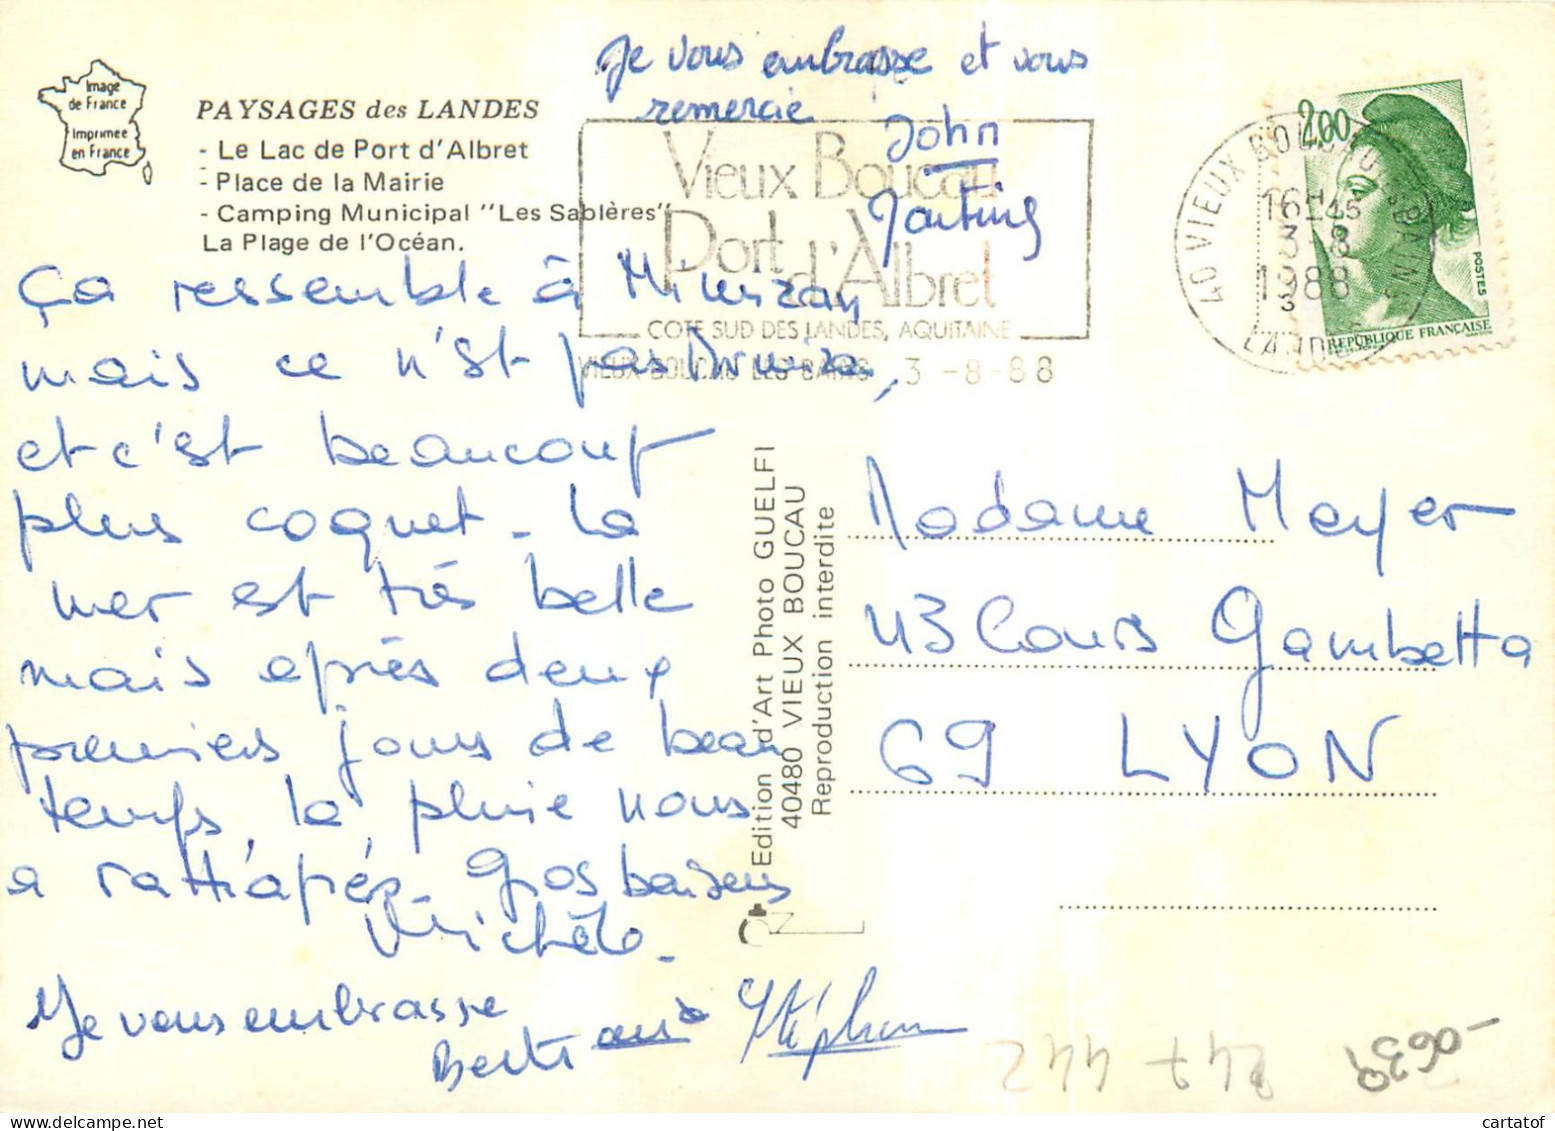 Je vous embrasse et vous
remercie
John
Image
de France
Imprimée
en France
PAYSAGES des LANDES
- Le Lac de Port d'Albret
- Place de la Mairie
- Camping Municipal "Les Sablères"
La Plage de l'Océan.
Vieux Boucau
Port d'Albret
COTE SUD DES LANDES, AQUITAINE
VIEUX BOUCAU LES BAINS 3 -8-88
40 VIEUX BOUCAU LES BAINS
16H45
3-8
1988
LANDES
2,00
POSTES
REPUBLIQUE FRANÇAISE
Ça ressemble à Mimizan
mais ce n'est pas
et c'est beaucoup
plus coquet - la
mer est très belle
mais après deux
premiers jours de beau
temps, la pluie nous
a rattrapés. Gros baisers
Michèle.
Je vous embrasse
Bertrand
Stéphane
Edition d'Art Photo GUELFI
40480 VIEUX BOUCAU
Reproduction interdite
Madame Meyer
43 Cours Gambetta
69 LYON
247 442
-0639